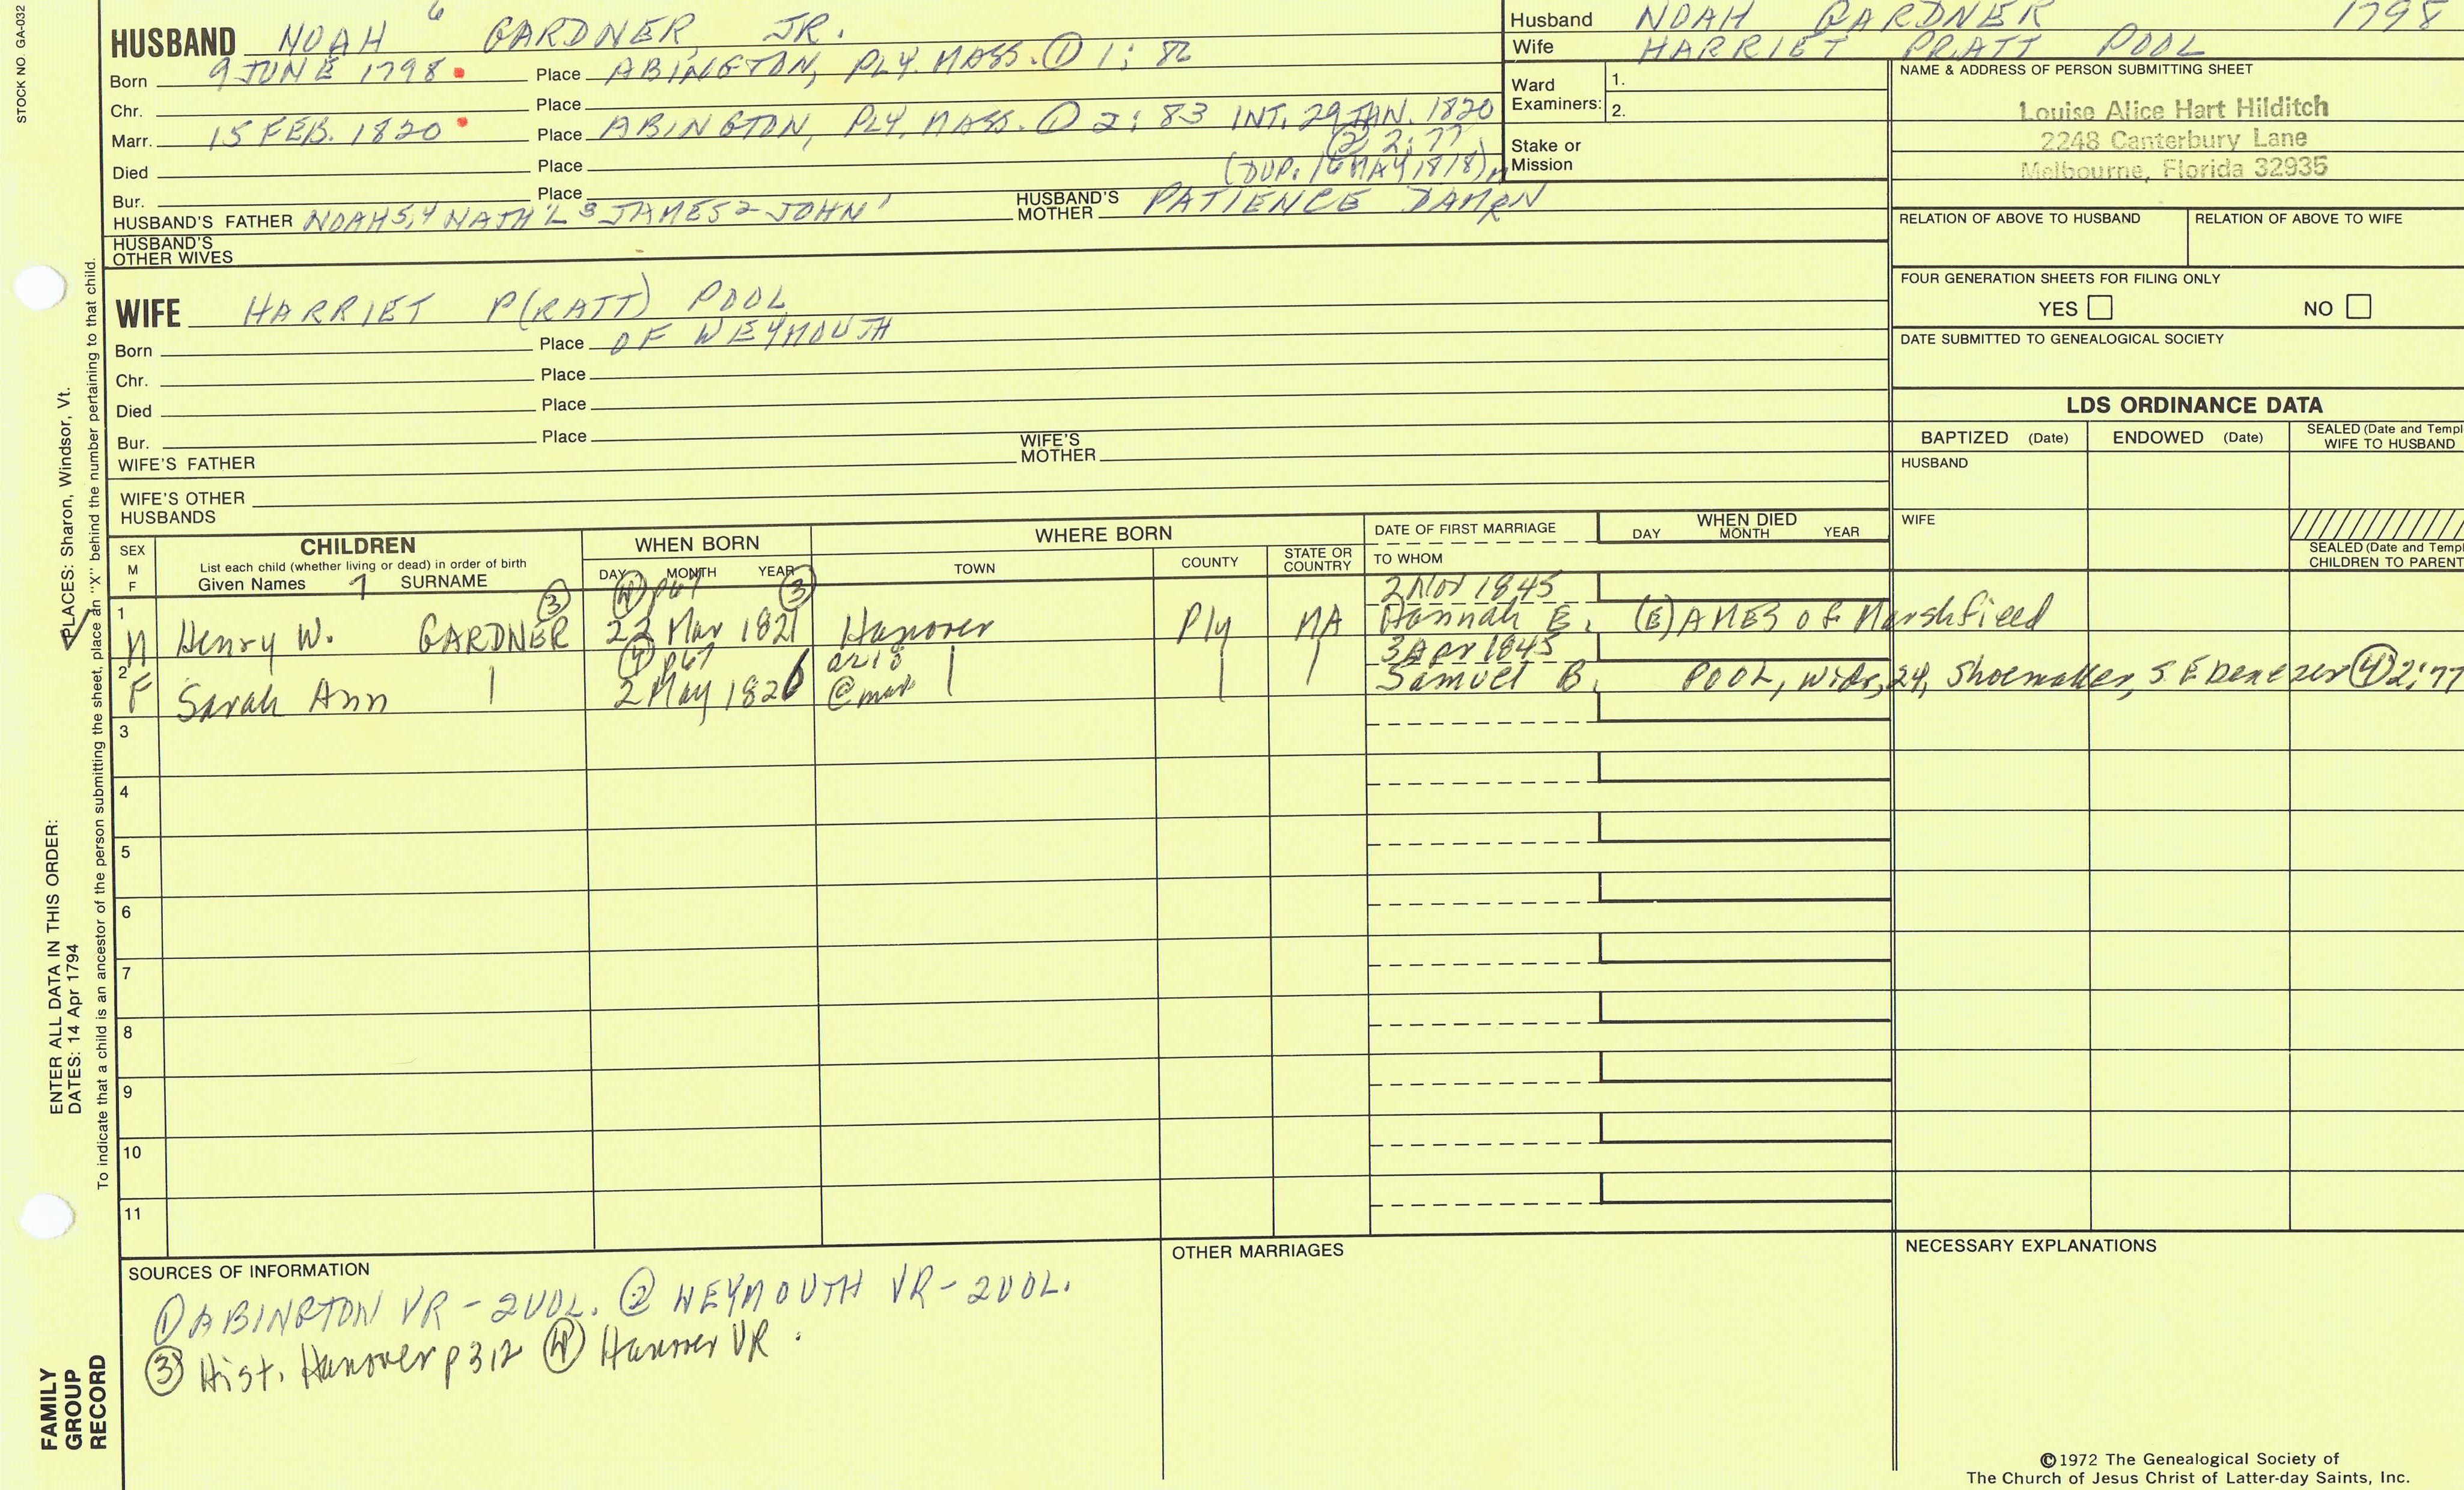 STOCK NO. GA-032
HUSBAND NOAH 6 GARDNER, JR.
Born 9 JUNE 1798 Place ABINGTON, PLY. MASS. ① 1: 86
Chr. Place
Marr. 15 FEB. 1820 Place ABINGTON, PLY. MASS. ① 2: 83 INT. 29 JAN. 1820
② 2: 77
Died Place (DUP. 16 MAY 1818)
Bur. Place
HUSBAND'S FATHER NOAH 5, 4 NATH'L 3 JAMES 2 JOHN 1 HUSBAND'S MOTHER PATIENCE
HUSBAND'S OTHER WIVES
WIFE HARRIET P(RATT) POOL
Born Place OF WEYMOUTH
Chr. Place
Died Place
Bur. Place
WIFE'S FATHER WIFE'S MOTHER
WIFE'S OTHER HUSBANDS
Husband NOAH GARDNER 1798
Wife HARRIET PRATT POOL
Ward Examiners: 1.
2.
Stake or Mission
NAME & ADDRESS OF PERSON SUBMITTING SHEET
Louise Alice Hart Hilditch
2248 Canterbury Lane
Melbourne, Florida 32935
RELATION OF ABOVE TO HUSBAND RELATION OF ABOVE TO WIFE
FOUR GENERATION SHEETS FOR FILING ONLY
YES NO
DATE SUBMITTED TO GENEALOGICAL SOCIETY
LDS ORDINANCE DATA
BAPTIZED (Date) ENDOWED (Date) SEALED (Date and Templ
WIFE TO HUSBAND
HUSBAND
WIFE
SEALED (Date and Templ
CHILDREN TO PARENT
SEX M F CHILDREN
List each child (whether living or dead) in order of birth
Given Names 7 SURNAME
WHEN BORN
DAY MONTH YEAR
WHERE BORN
TOWN COUNTY STATE OR COUNTRY
DATE OF FIRST MARRIAGE
TO WHOM
WHEN DIED
DAY MONTH YEAR
③ ④ p67 ③ 2 Nov 1845
1 M Henry W. GARDNER 22 Mar 1821 Hanover Ply MA Hannah E. (E)AMES of Marshfield
④ p67 ae 18 3 Apr 1845
2 F Sarah Ann 2 May 1826 @ mar Samuel B. POOL, widr, 24, Shoemaker, S. Ebenezer ④ 2:77
3
4
5
6
7
8
9
10
11
SOURCES OF INFORMATION
① ABINGTON VR - 2 VOL. ② WEYMOUTH VR - 2 VOL.
③ Hist. Hanover p 312 ④ Hanover VR.
OTHER MARRIAGES
NECESSARY EXPLANATIONS
©1972 The Genealogical Society of
The Church of Jesus Christ of Latter-day Saints, Inc.
ENTER ALL DATA IN THIS ORDER:
DATES: 14 Apr 1794
PLACES: Sharon, Windsor, Vt.
To indicate that a child is an ancestor of the person submitting the sheet, place an "X" behind the number pertaining to that child.
FAMILY
GROUP
RECORD